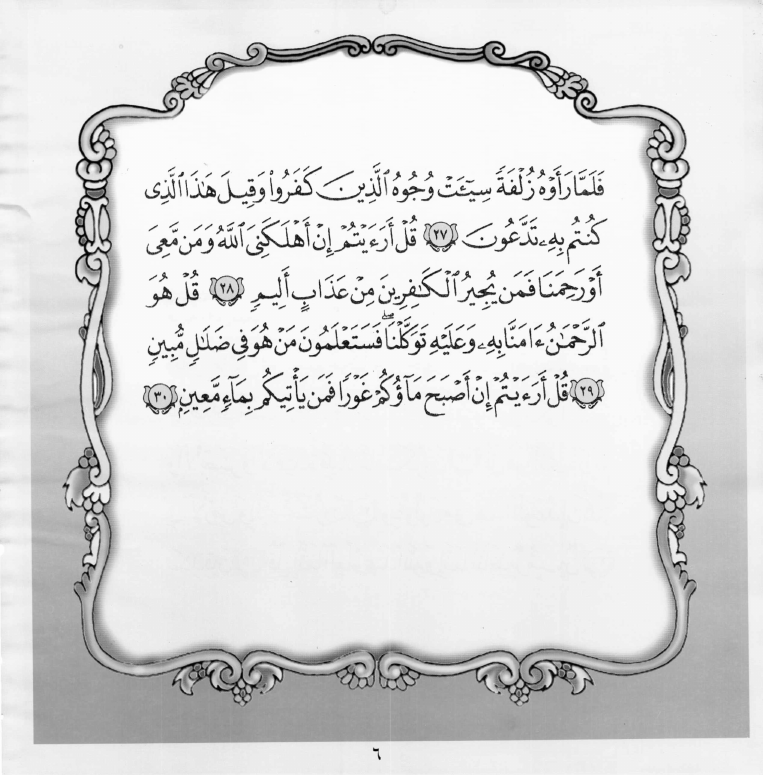 فَلَمَّا رَأَوْهُ زُلْفَةً سِيٓـَٔتْ وُجُوهُ ٱلَّذِينَ كَفَرُوا۟ وَقِيلَ هَٰذَا ٱلَّذِى
كُنتُم بِهِۦ تَدَّعُونَ ٢٧ قُلْ أَرَءَيْتُمْ إِنْ أَهْلَكَنِىَ ٱللَّهُ وَمَن مَّعِىَ
أَوْ رَحِمَنَا فَمَن يُجِيرُ ٱلْكَٰفِرِينَ مِنْ عَذَابٍ أَلِيمٍ ٢٨ قُلْ هُوَ
ٱلرَّحْمَٰنُ ءَامَنَّا بِهِۦ وَعَلَيْهِ تَوَكَّلْنَا ۖ فَسَتَعْلَمُونَ مَنْ هُوَ فِى ضَلَٰلٍ مُّبِينٍ
٢٩ قُلْ أَرَءَيْتُمْ إِنْ أَصْبَحَ مَآؤُكُمْ غَوْرًا فَمَن يَأْتِيكُم بِمَآءٍ مَّعِينٍۭ ٣٠
٦